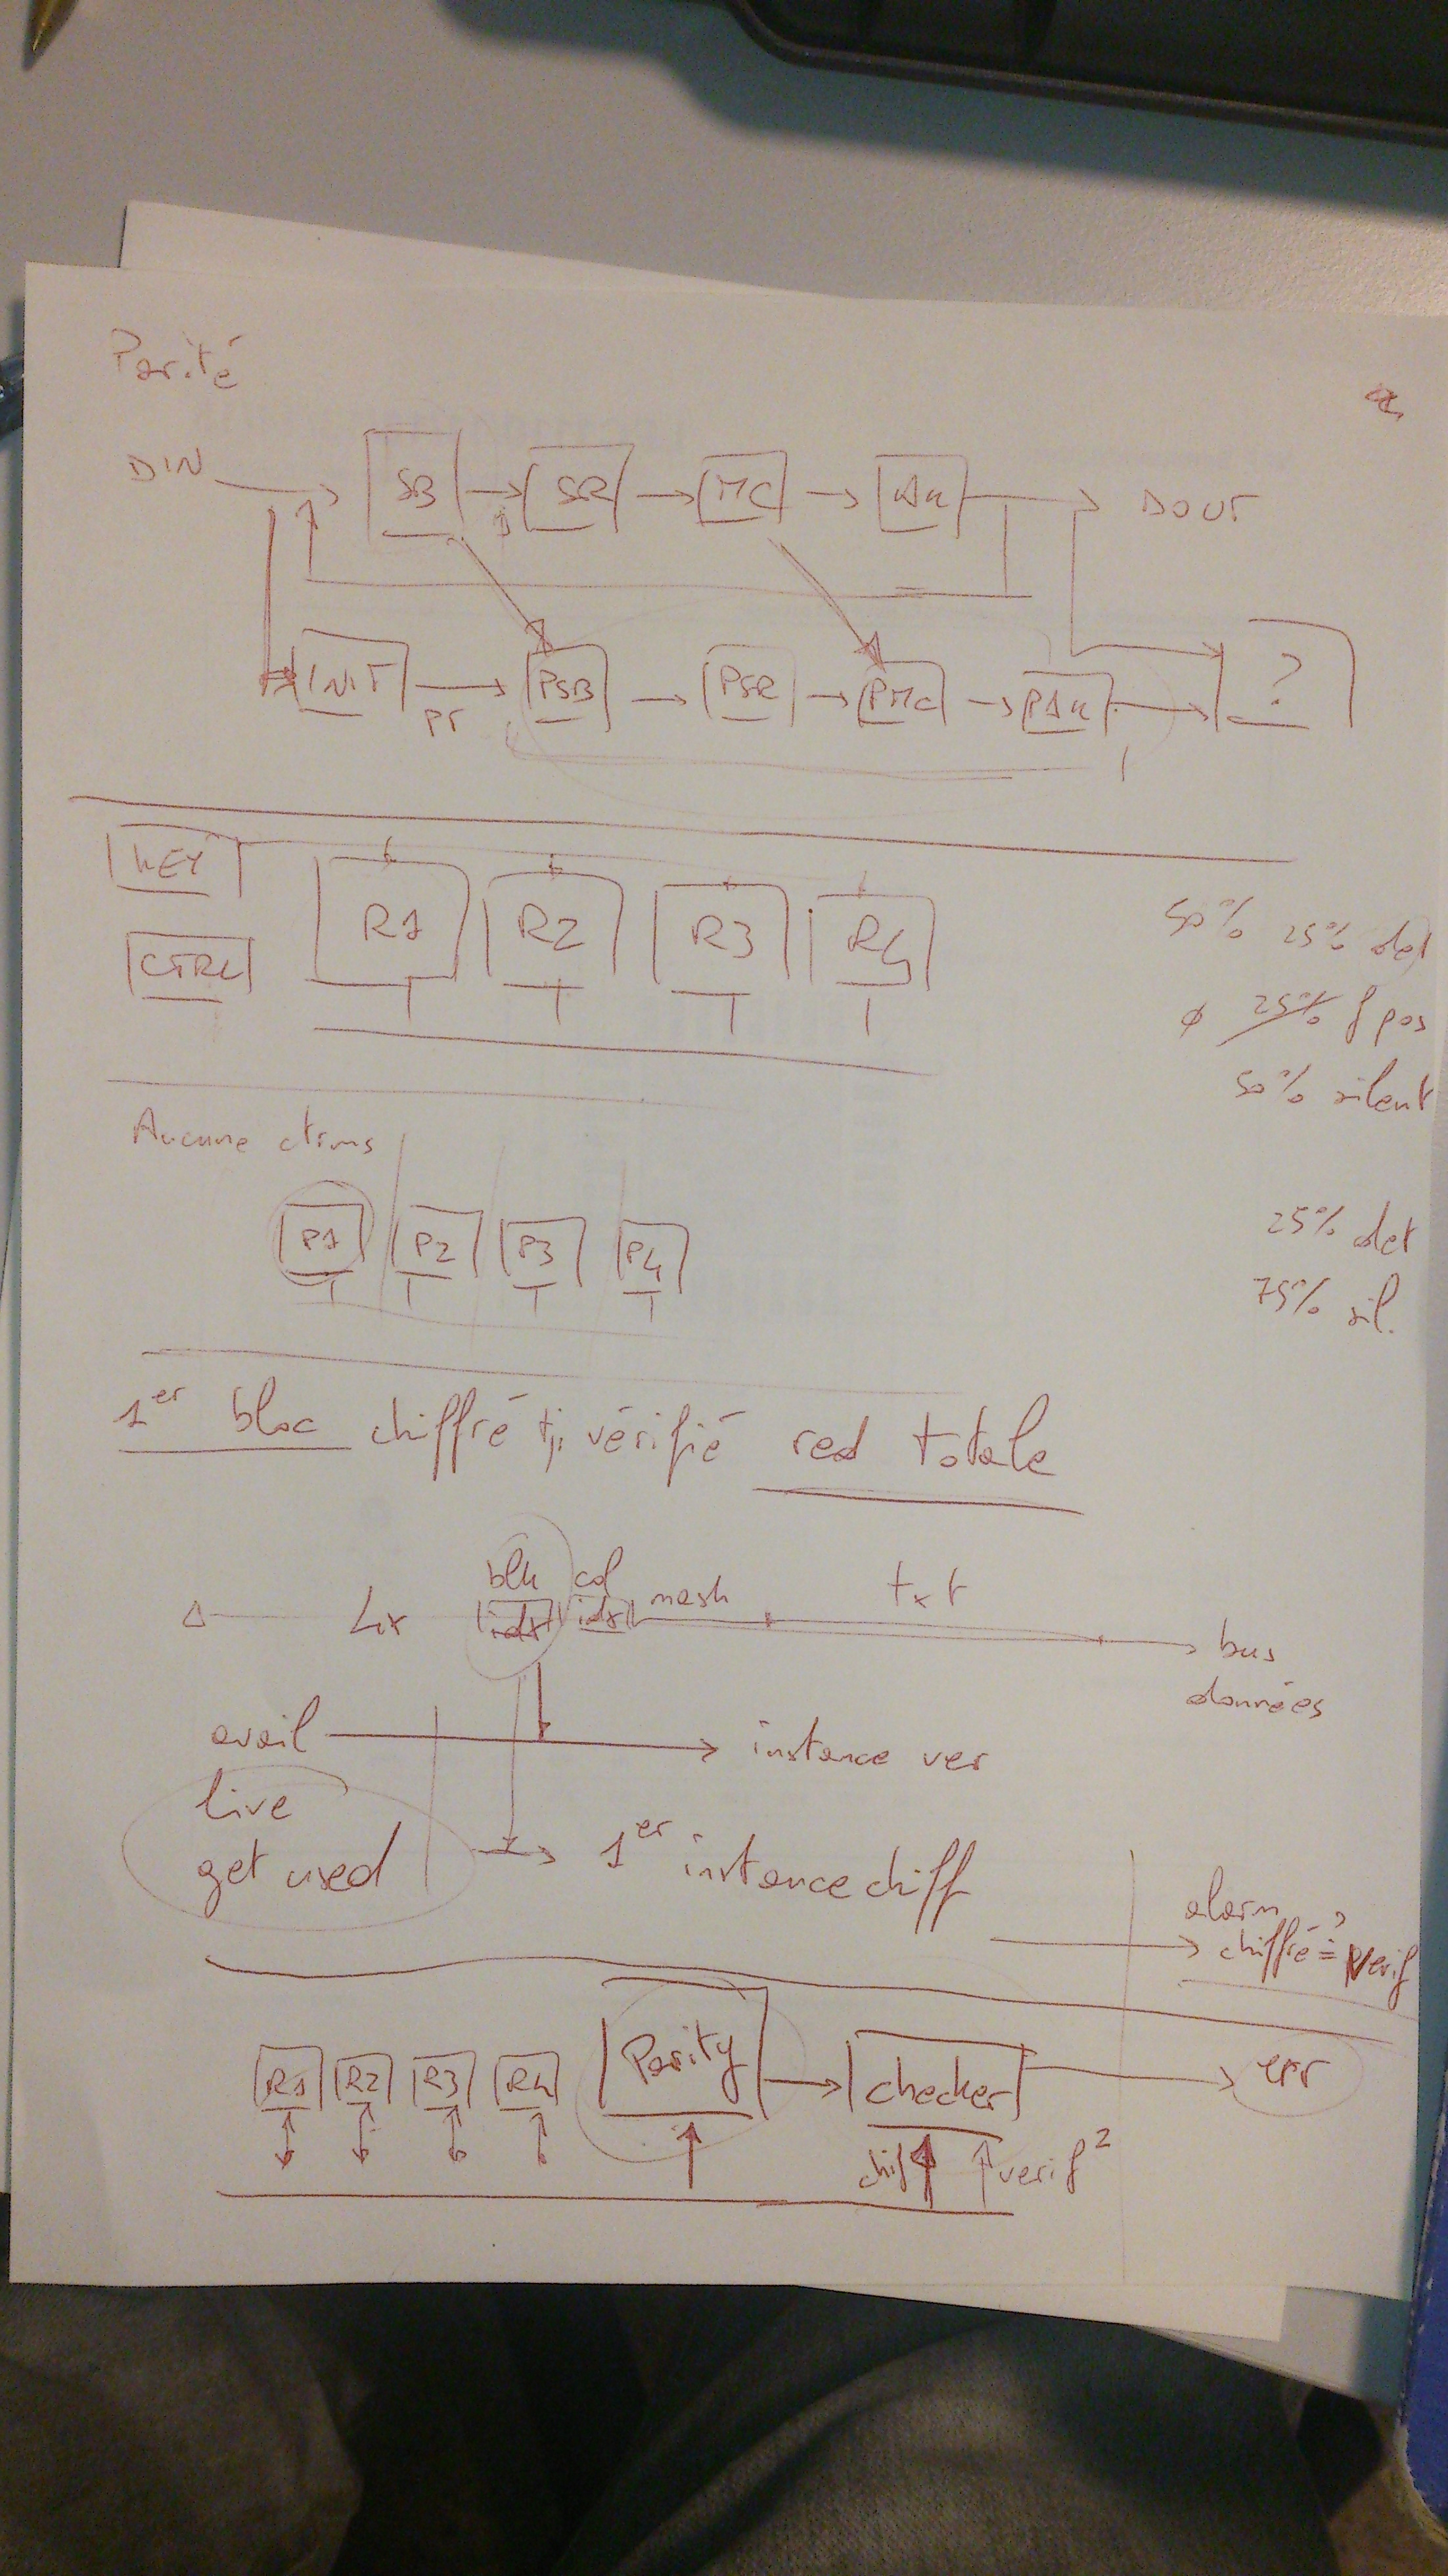 Parité
DIN SB SR MC AK DOUT
INIT PT PSB PSR PMC PAK ?
KEY R1 R2 R3 R4
CTRL
50% 25% det
ϕ 25% f pos
50% silent
Aucune
P1 P2 P3 P4
25% det
75% sil.
1er bloc chiffré tj vérifié red totale
blk col
4x idx idx mask txt bus
données
avail instance ver
live
get used 1er instance chiff
alarm
chiffré ≟ verif
R1 R2 R3 R4 Parity checker err
chif verif 2